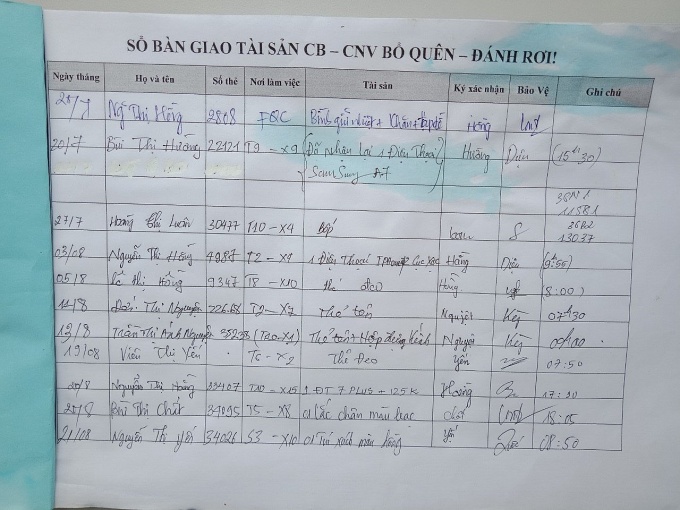 SỔ BÀN GIAO TÀI SẢN CB – CNV BỎ QUÊN – ĐÁNH RƠI!
Ngày tháng Họ và tên Số thẻ Nơi làm việc Tài sản Ký xác nhận Bảo Vệ Ghi chú
Ng Thị Hồng 2808 FQC Bình giữ nhiệt + khăn + Hồng
20/7 Bùi Thị Hương 22121 T9 – X9 (Đã nhận lại 1 Điện Thoại Hương Diệu (15h30)
Sam Sung A7
36N1
1158.1
27/7 Hoàng Thị Luân 30477 T10 – X4 36B2
13037
03/08 Nguyễn Thị Hồng 4987 T2 – X7 1 Điện Thoại Iphone Cục sạc Hồng Diệu (9h50)
05/8 Thị Hồng 9347 T8 – X10 thẻ đeo Hồng (8:00)
11/8 Thị Nguyên 22658 T2 – X7 Thẻ tên Nguyệt Kệ 07h30
13/8 Trần Thị Ánh Nguyên 35238 (T20 – X1) Thẻ tên + Hộp đựng kính Nguyên Kệ
19/08 Viên Thị Yến T6 – X2 Thẻ Đeo Yến 07:50
20/8 Nguyễn Thị Hoàng 33407 T20 – X15 1 ĐT 7 PLUS + 125K Hoàng 17:30
Bùi Thị Chát 34095 T5 – X8 01 lắc chân màu bạc chát 18:05
21/08 Nguyễn Thị Yến 34026 S3 – X10 01 Túi xách màu hồng Yến 08:50